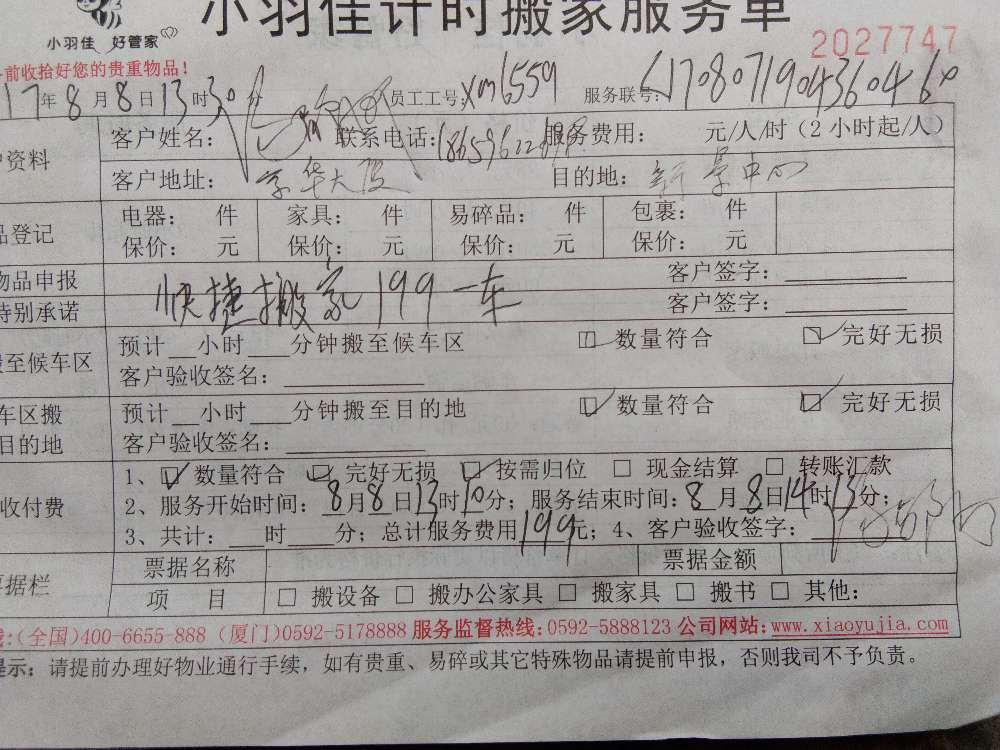 小羽佳计时搬家服务单
小羽佳 好管家
2027747
前收拾好您的贵重物品！
17年8月8日13时30分 员工工号：xm6559 服务联号：
客户姓名： 联系电话： 服务费用： 元/人/时（2小时起/人）
户资料
客户地址： 大厦 目的地： 新景中心
品登记
电器： 件 家具： 件 易碎品： 件 包裹： 件
保价： 元 保价： 元 保价： 元 保价： 元
物品申报 客户签字：
快捷搬家199一车
特别承诺 客户签字：
搬至候车区 预计__小时___分钟搬至候车区 数量符合 完好无损
客户验收签名：
车区搬 预计__小时___分钟搬至目的地 数量符合 完好无损
目的地 客户验收签名：
1、 数量符合 完好无损 按需归位 □ 现金结算 □ 转账汇款
收付费 2、服务开始时间：8月8日13时10分；服务结束时间：8月8日14时13分；
3、共计：___时____分；总计服务费用199元；4、客户验收签字：
票据栏 票据名称 票据金额
项 目 □ 搬设备 □ 搬办公家具 □ 搬家具 □ 搬书 □ 其他：
线：(全国)400-6655-888 (厦门)0592-5178888 服务监督热线：0592-5888123 公司网站：www.xiaoyujia.com
提示：请提前办理好物业通行手续，如有贵重、易碎或其它特殊物品请提前申报，否则我司不予负责。